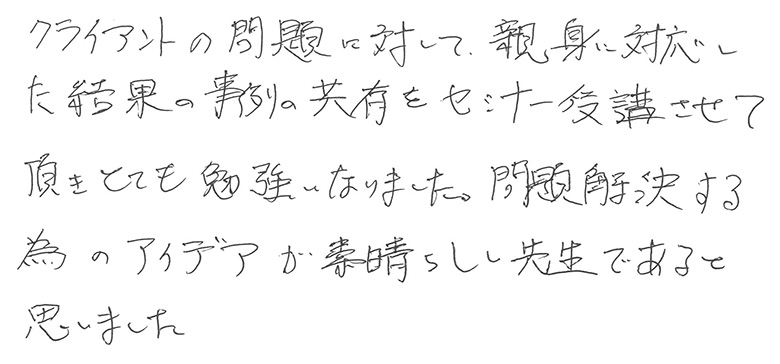 クライアントの問題に対して、親身に対応し
た結果の事例の共有をセミナー受講させて
頂きとても勉強になりました。問題解決する
為のアイデアが素晴らしい先生であると
思いました